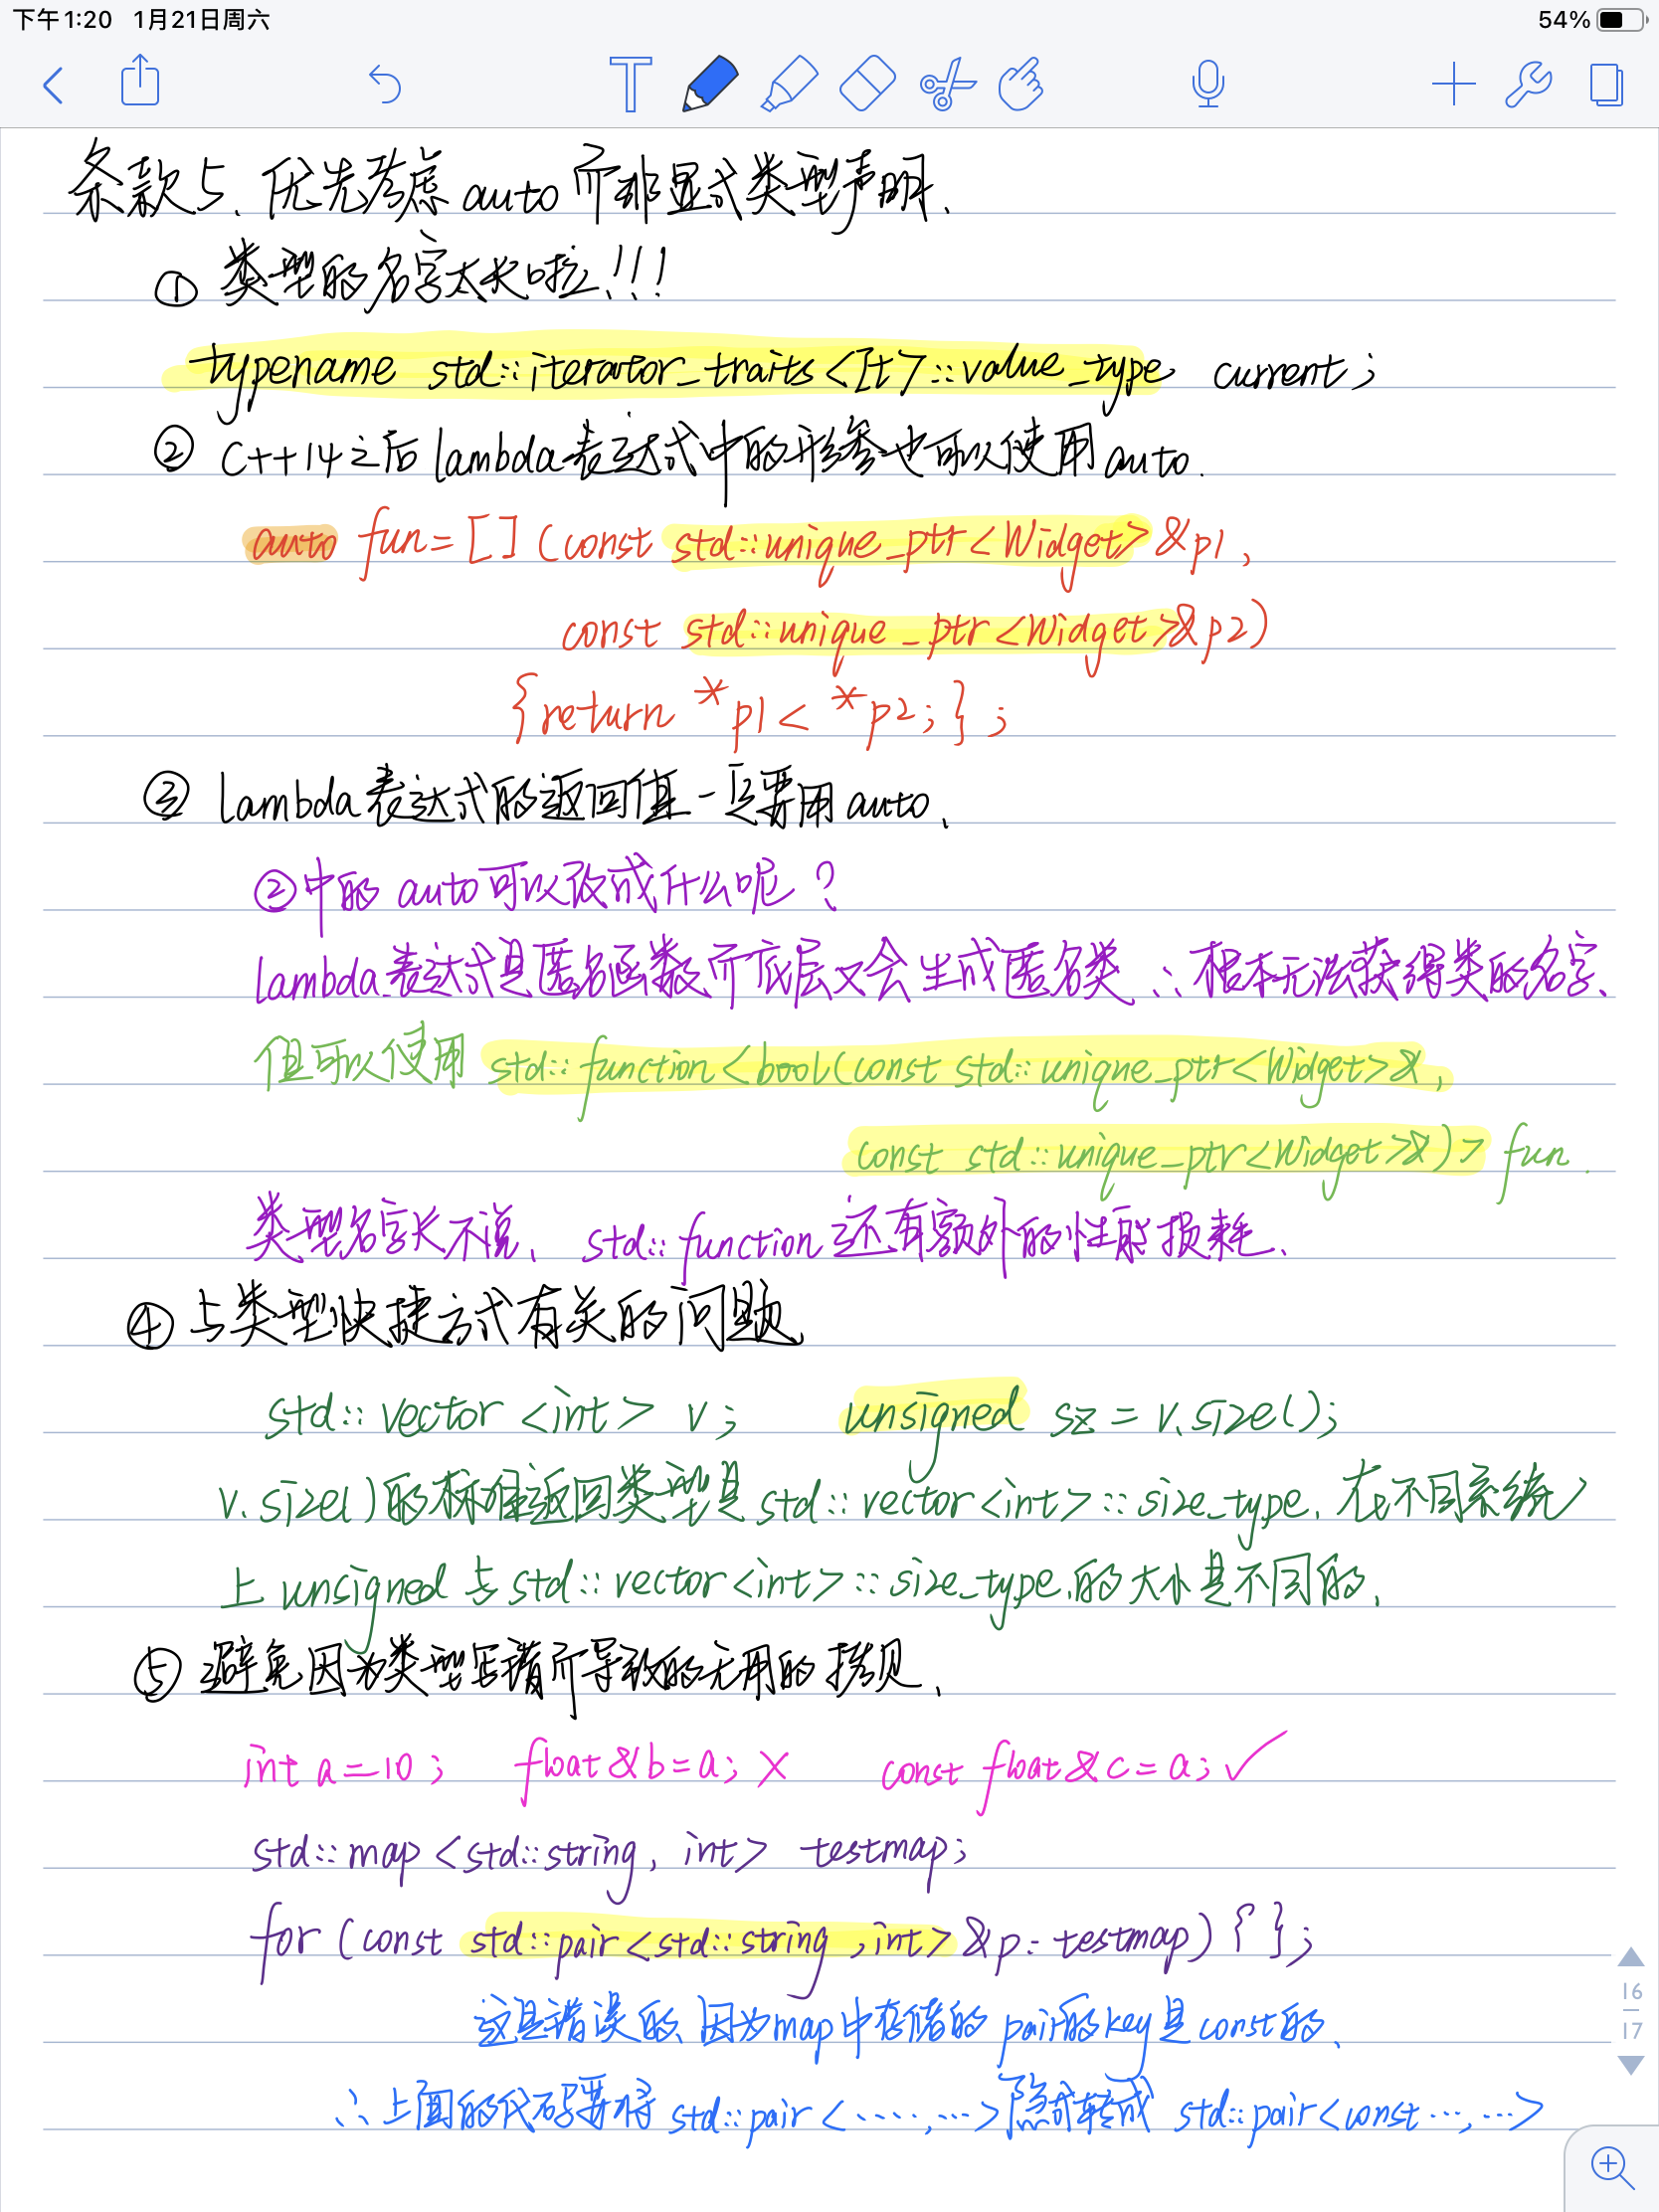 下午1:20 1月21日周六 54%
条款5、优先考虑 auto 而非显式类型声明、
① 类型的名字太长啦!!!
typename std::iterator_traits<It>::value_type current;
② C++14之后 lambda表达式中的形参也可以使用auto.
auto fun=[](const std::unique_ptr<Widget>&p1,
const std::unique_ptr<Widget>&p2)
{return *p1< *p2;};
③ lambda表达式的返回值一定要用auto、
②中的 auto可以改成什么呢?
lambda表达式是匿名函数而底层又会生成匿名类 ∴根本无法获得类的名字、
但可以使用 std::function<bool(const std::unique_ptr<Widget>&,
const std::unique_ptr<Widget>&)> fun.
类型名字长不说、std::function还有额外的性能损耗、
④ 与类型快捷方式有关的问题、
std::vector<int> v; unsigned sz = v.size();
v.size()的标准返回类型是 std::vector<int>::size_type、在不同系统
上 unsigned 与 std::vector<int>::size_type、的大小是不同的、
⑤ 避免因为类型写错所导致的无用的拷贝、
int a=10; float&b=a; × const float&c=a; ✓
std::map<std::string, int> testmap;
for (const std::pair<std::string,int>&p: testmap){};
这是错误的、因为map中存储的 pair的key是const的、
∴上面的代码要将 std::pair<····,···>隐式转成 std::pair<const···,···>
16
17